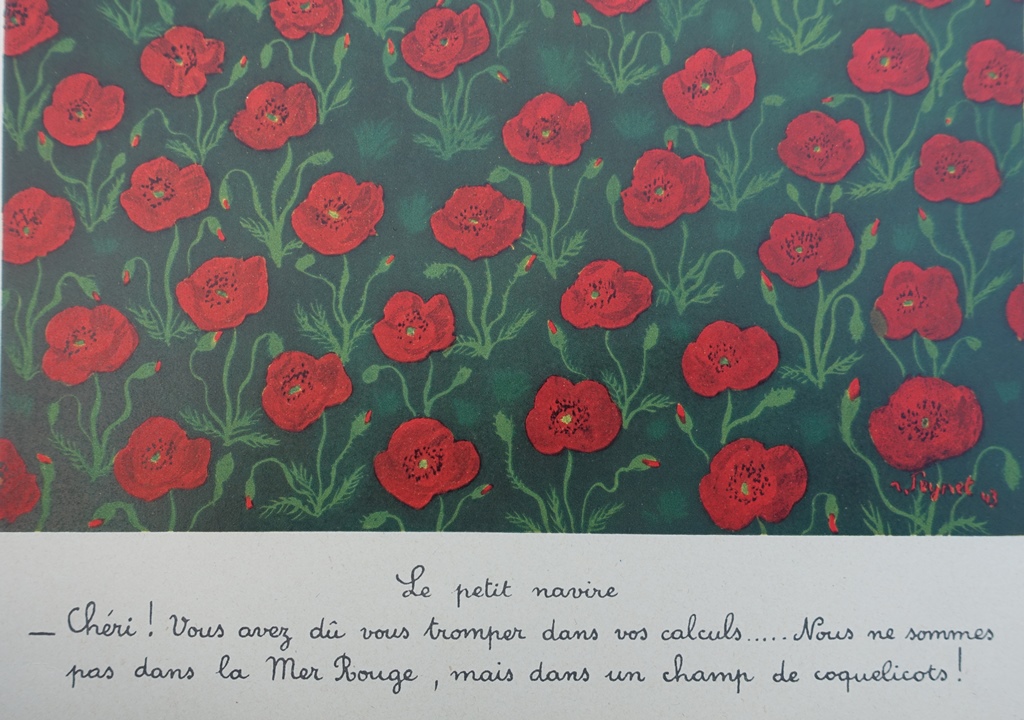 r. Peynet 43
Le petit navire
— Chéri ! Vous avez dû vous tromper dans vos calculs..... Nous ne sommes
pas dans la Mer Rouge , mais dans un champ de coquelicots !